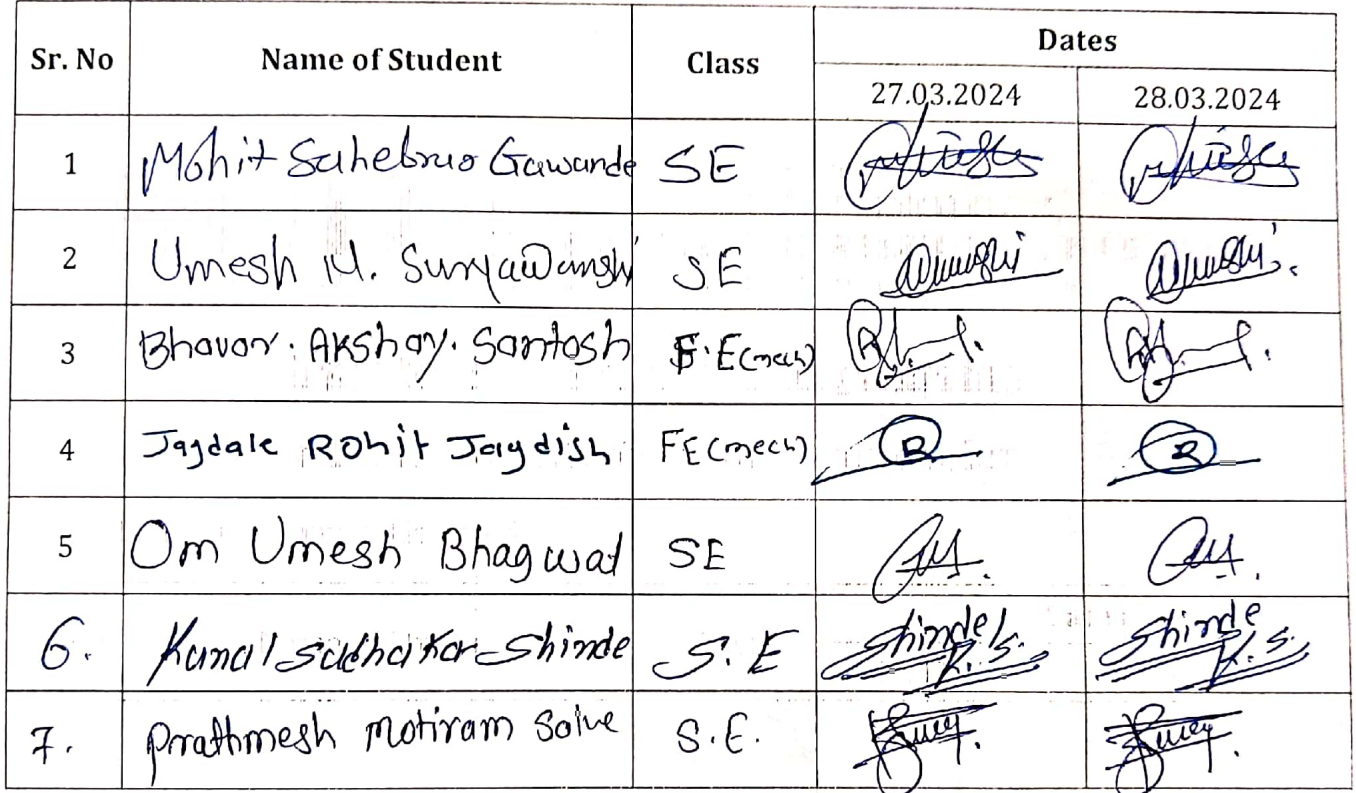 Sr. No Name of Student Class Dates
27.03.2024 28.03.2024
1 Mohit Sahebrao Gawande SE
2 Umesh M. Suryawanshi SE
3 Bhavar. Akshay. Santosh F.E(mech)
4 Jagdale Rohit Jagdish FE(mech)
5 Om Umesh Bhagwat SE
6. Kunal Sudhakar Shinde S.E Shinde K.S. Shinde K.S.
7. Prathmesh Motiram Salve S.E.